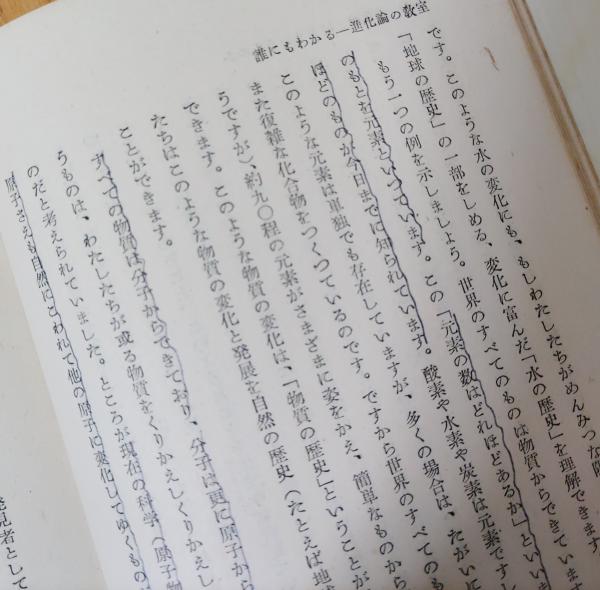 誰にもわかる―進化論の教室
です。このような水の変化にも、もしわたしたちがめんみつな
「地球の歴史」の一部をしめる、変化に富んだ「水の歴史」を理解できます
もう一つの例を示しましよう。世界のすべてのものは物質からできています
のもとを元素といつています。この「元素の数はどれほどあるか」といい
ほどのものが今日までに知られています。酸素や水素や炭素は元素ですし
このような元素は単独でも存在していますが、多くの場合は、たがいに
また復雑な化合物をつくつているのです。ですから世界のすべてのも
うですが)、約九〇程の元素がさまざまに姿をかえ、簡単なものから
できます。このような物質の変化は、「物質の歴史」ということが
たちはこのような物質の変化と発展を自然の歴史(たとえば地球
ことができます。
すべての物質は分子からできており、分子は更に原子から
うものは、わたしたちが或る物質をくりかえしくりかえし
のだと考えられていました。ところが現在の科学(原子物
原子さえも自然にこわれて他の原子に変化してゆくもの
発見者として